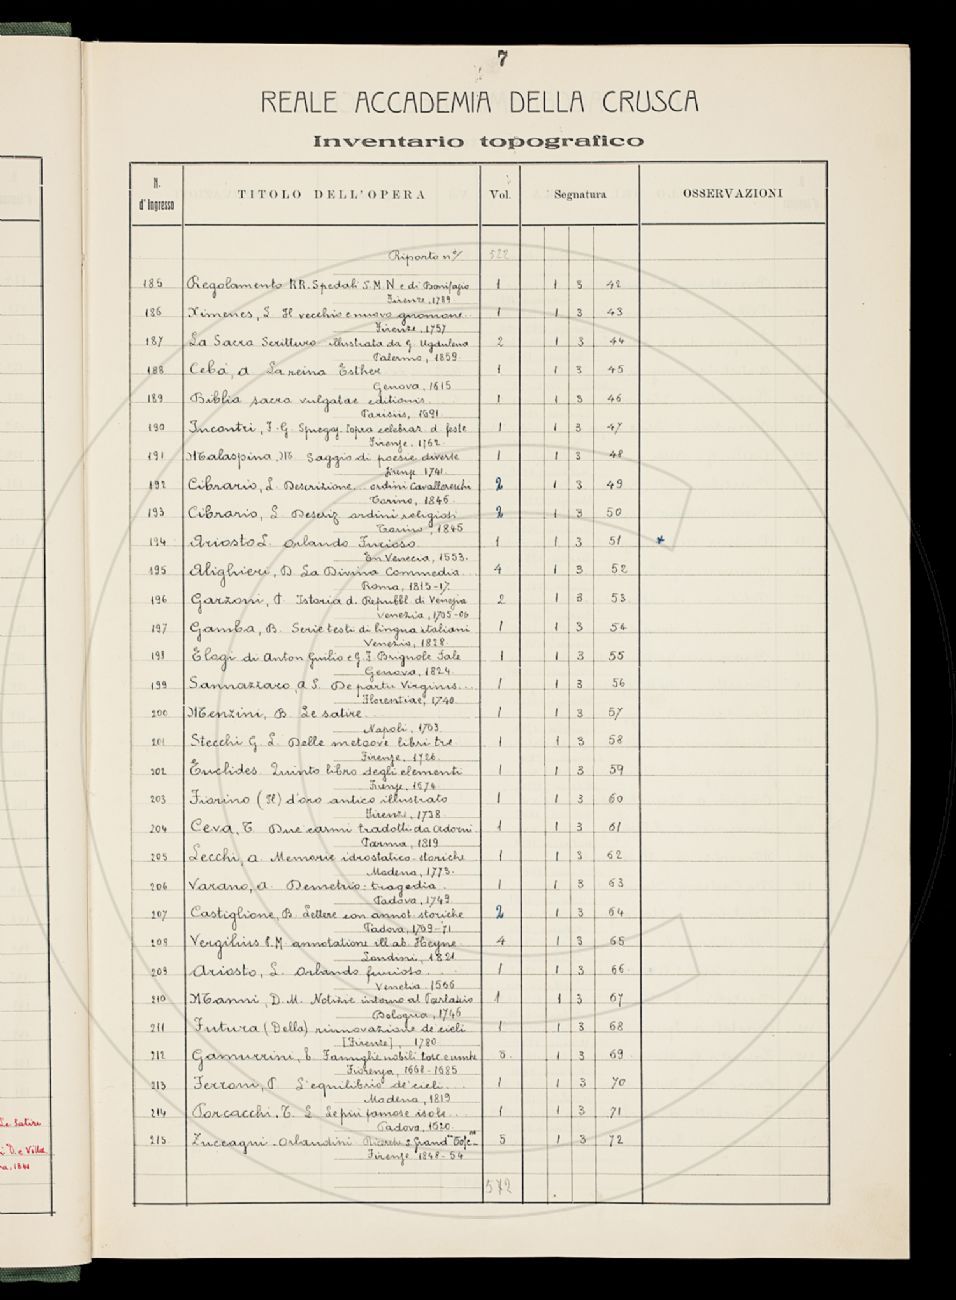 7
REALE ACCADEMIA DELLA CRUSCA
Inventario topografico
N. d'Ingresso TITOLO DELL'OPERA Vol. Segnatura OSSERVAZIONI
Riporto nº/ 522
185 Regolamento RR. Spedali S M N e di Bonifazio 1 1 3 42
Firenze, 1789
186 Ximenes, L Il vecchio e nuovo gnomone.. 1 1 3 43
Firenze, 1757
187 La Sacra Scrittura illustrata da G Ugdulena 2 1 3 44
Palermo, 1859
188 Cebà, A La reina Esther 1 1 3 45
Genova, 1615
189 Biblia sacra vulgatae editionis. 1 1 3 46
Parisiis, 1691
190 Incontri, F. G. Spiegaz. sopra celebraz. d. feste 1 1 3 47
Firenze, 1762
191 Malaspina, M Saggio di poesie diverse 1 1 3 48
Firenze 1741.
192 Cibrario, L. Descrizione.. ordini Cavallereschi 2 1 3 49
Torino, 1846.
193 Cibrario, L Descriz ordini religiosi 2 1 3 50
Torino, 1845
194 Ariosto L. Orlando Furioso. 1 1 3 51 *
En Venecia, 1553.
195 Alighieri, D La Divina Commedia... 4 1 3 52
Roma, 1815-17
196 Garzoni, P. Istoria d. Repubbl di Venezia 2 1 3 53
Venezia, 1705-06
197 Gamba, B. Serie testi di lingua italiani 1 1 3 54
Venezia, 1828
198 Elogi di Anton Giulio e G. F. Brignole Sale 1 1 3 55
Genova, 1824
199 Sannazzaro, A S. De partu Virginis... 1 1 3 56
Florentiae, 1740
200 Menzini, B. Le satire. 1 1 3 57
Napoli, 1763
201 Stecchi G. L. Delle meteore libri tre 1 1 3 58
Firenze, 1726
202 Euclides. Quinto libro degli elementi 1 1 3 59
Firenze, 1674
203 Fiorino (Il) d'oro antico illustrato 1 1 3 60
Firenze, 1738
204 Ceva, T. Due carmi tradotti da Adorni. 1 1 3 61
Parma, 1819
205 Lecchi, A. Memorie idrostatico-storiche 1 1 3 62
Modena, 1773.
206 Varano, A. Demetrio: tragedia. 1 1 3 63
Padova, 1749
207 Castiglione, B. Lettere con annot. storiche 2 1 3 64
Padova, 1769-71
208 Vergilius P. M. annotatione ill. ab. Heyne 4 1 3 65
Londini, 1821
209 Ariosto, L. Orlando furioso.. 1 1 3 66
Venetia 1566
210 Manni, D. M. Notizie intorno al Parlascio 1 1 3 67
Bologna, 1746
211 Futura (Della) rinnovazione de' cieli 1 1 3 68
[Firenze], 1780
212 Gamurrini, E. Famiglie nobili tosc. e umbre 5 1 3 69
Fiorenza, 1668-1685
213 Ferroni, P L'equilibrio de' cieli... 1 1 3 70
Modena, 1819
214 Porcacchi, T. L Le più famose isole... 1 1 3 71
Padova, 1620
215 Zuccagni-Orlandini Ricerche s. Grand. Tosc. 5 1 3 72
Firenze 1848-54
572
Le Satire
i D. e Villa